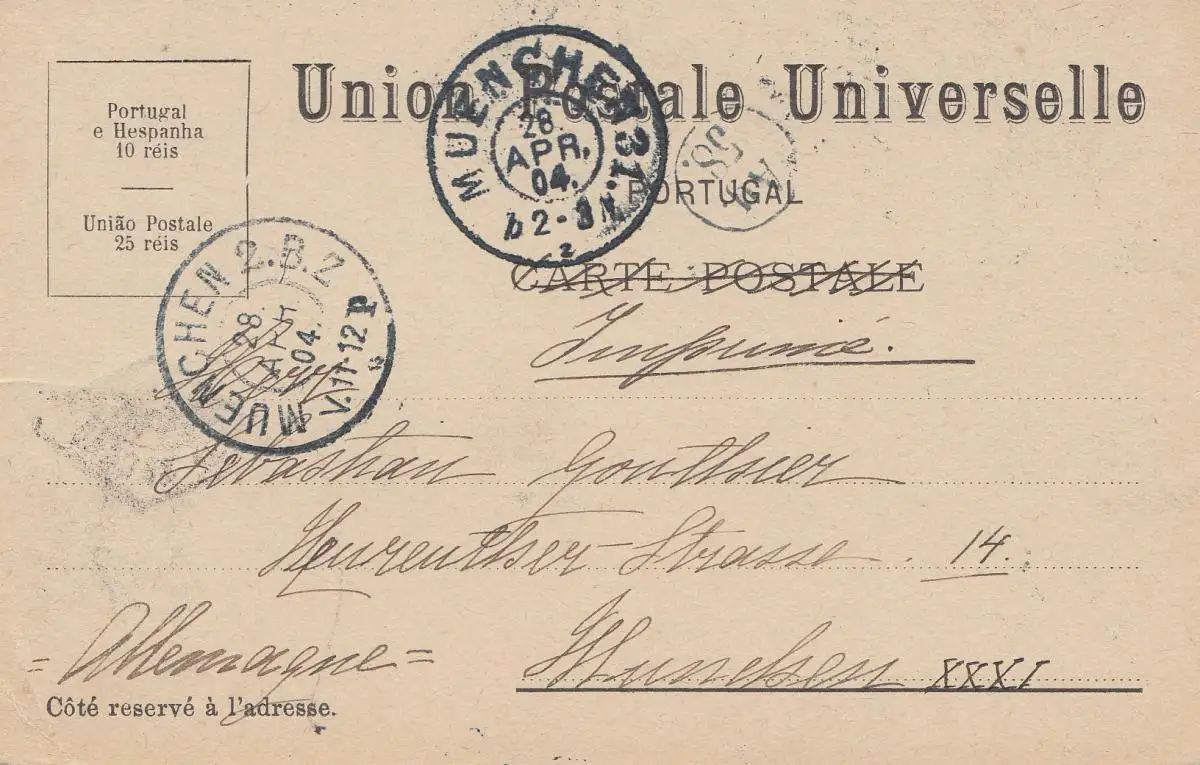 Portugal
e Hespanha
10 réis
União Postale
25 réis
Union Postale Universelle
PORTUGAL
CARTE POSTALE
MUENCHEN 31.
28.
APR.
04.
2-3 N.
2
MUENCHEN 2.B.Z
28
APR
04.
V.11-12
Imprimé.
Herrn
Sebastian Gouthier
Strasse. 14.
= Allemagne =
München XXXI
Côté reservé à l'adresse.